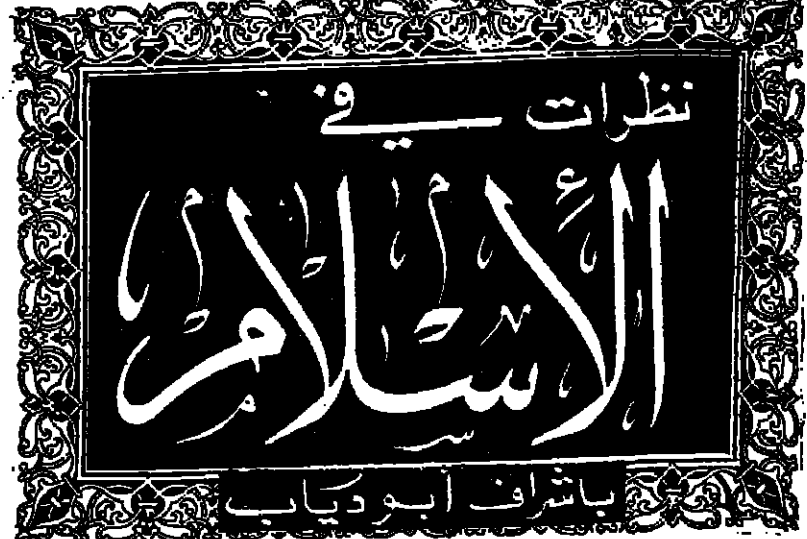 نظرات في
الإسلام
باشراف أبو دياب